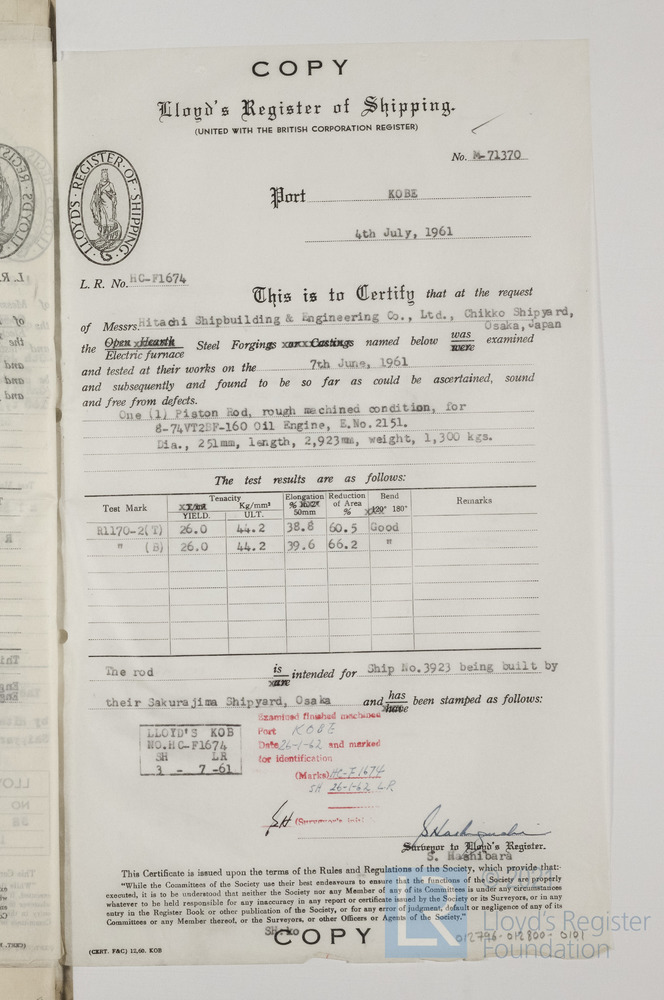 COPY
Lloyd's Register of Shipping.
(UNITED WITH THE BRITISH CORPORATION REGISTER)
No. M-71370
LLOYD'S · REGISTER · OF · SHIPPING ·
Port KOBE
4th July, 1961
L. R. No. HC-F1674
This is to Certify that at the request
of Messrs. Hitachi Shipbuilding & Engineering Co., Ltd., Chikko Shipyard,
Osaka, Japan
the Open Hearth Steel Forgings or Castings named below was were examined
Electric furnace
and tested at their works on the 7th June, 1961
and subsequently and found to be so far as could be ascertained, sound
and free from defects.
One (1) Piston Rod, rough machined condition, for
8-74VT2BF-160 Oil Engine, E.No.2151.
Dia., 251mm, length, 2,923mm, weight, 1,300 kgs.
The test results are as follows:
Test Mark Tenacity Kg/mm² YIELD. ULT. Elongation % 50mm Reduction of Area % Bend 180° Remarks
R1170-2(T) 26.0 44.2 38.8 60.5 Good
" (B) 26.0 44.2 39.6 66.2 "
The rod is are intended for Ship No.3923 being built by
their Sakurajima Shipyard, Osaka and has have been stamped as follows:
LLOYD'S KOB
NO.HC-F1674
SH LR
3 - 7 -61
Examined finished machined
Port KOBE
Date 26-1-62 and marked
for identification
(Marks) HC-F1674
SH 26-1-62 L.R.
SH (Surveyor's
Surveyor to Lloyd's Register.
S. Hashibara
This Certificate is issued upon the terms of the Rules and Regulations of the Society, which provide that:-
"While the Committees of the Society use their best endeavours to ensure that the functions of the Society are properly
executed, it is to be understood that neither the Society nor any Member of any of its Committees is under any circumstances
whatever to be held responsible for any inaccuracy in any report or certificate issued by the Society or its Surveyors, or in any
entry in the Register Book or other publication of the Society, or for any error of judgment, default or negligence of any of its
Committees or any Member thereof, or the Surveyors, or other Officers or Agents of the Society."
SH:ko
COPY
012796-012800-0101
(CERT. F&C) 12,60. KOB
Lloyd's Register
Foundation